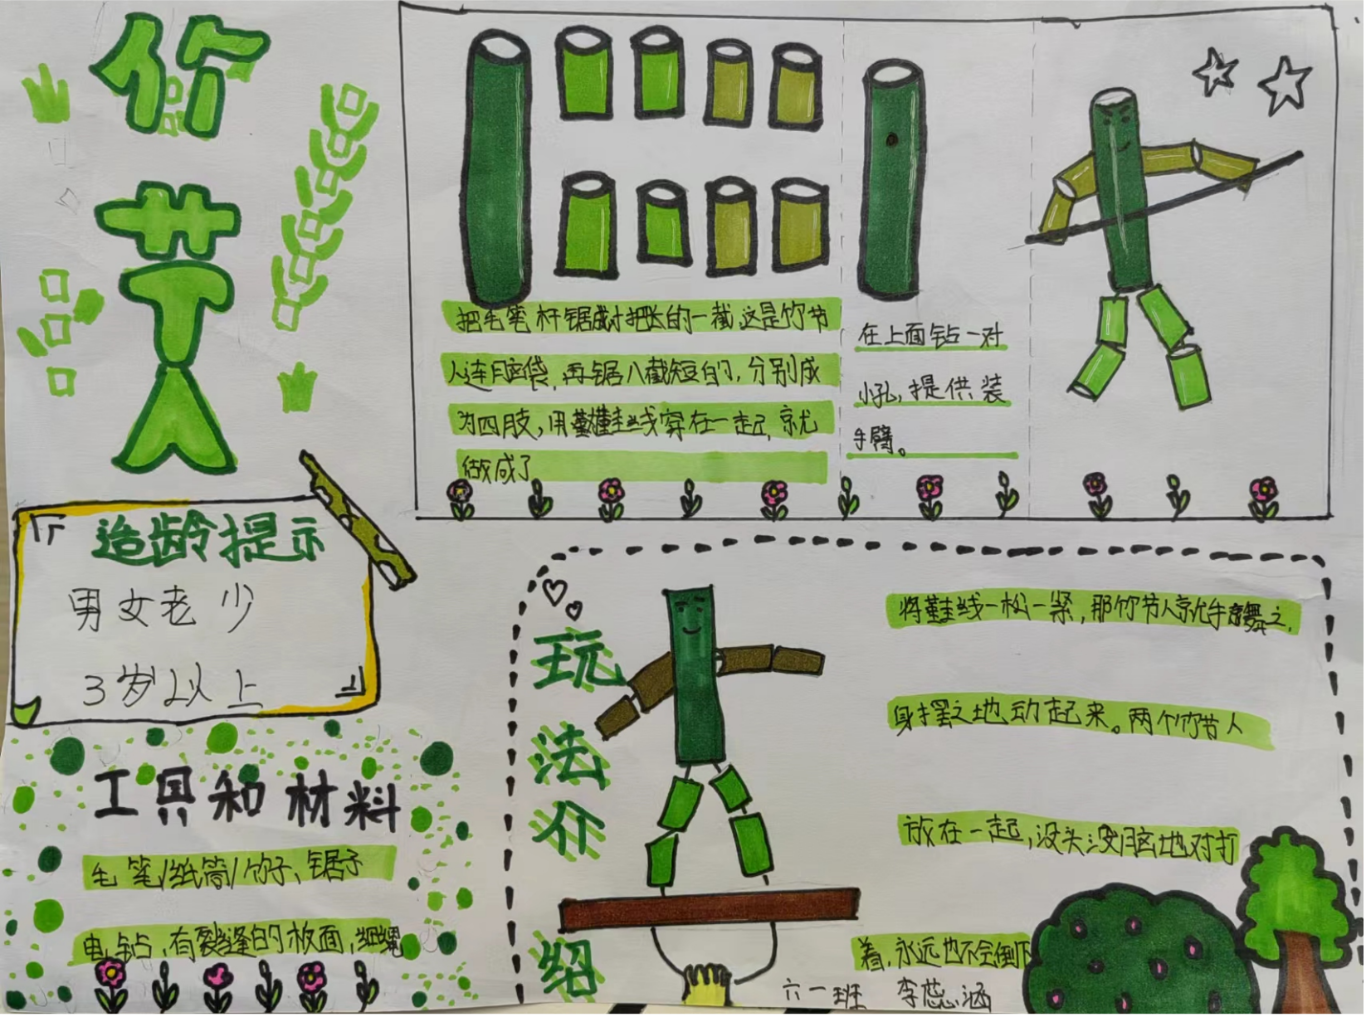 竹
节
人
把毛笔杆锯成寸把长的一截,这是竹节
人连脑袋,再锯八截短的,分别成
为四肢,用鞋线穿在一起,就
做成了
在上面钻一对
小孔,提供装
手臂。
适龄提示
男女老少
3岁以上
工具和材料
毛笔/纸筒/竹子、锯子
电钻,有裂缝的板面,细绳
玩
法
介
绍
将鞋线一松一紧,那竹节人就手舞之,
身摆之地动起来。两个竹节人
放在一起,没头没脑地对打
着,永远也不会倒下
六一班 李蕊涵